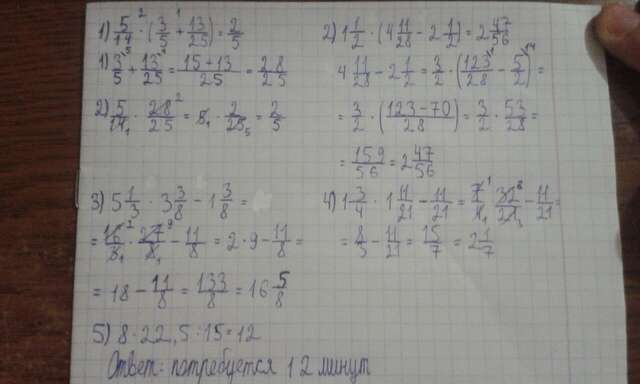 1) 5/14 · (3/5 + 13/25) = 2/5
1) 3/5 + 13/25 = 15+13/25 = 28/25
2) 5/14 · 28/25 = 5 · 2/25 = 2/5
2) 1 1/2 · (4 11/28 - 2 1/2) = 2 47/56
4 11/28 - 2 1/2 = 3/2 · (123/28 - 5/2) =
= 3/2 · (123-70/28) = 3/2 · 53/28 =
= 159/56 = 2 47/56
3) 5 1/3 · 3 3/8 - 1 3/8 =
= 16/3 · 27/8 - 11/8 = 2·9 - 11/8 =
= 18 - 11/8 = 133/8 = 16 5/8
4) 1 3/4 · 1 11/21 - 11/21 = 7/4 · 32/21 - 11/21 =
= 8/3 - 11/21 = 15/7 = 2 1/7
5) 8·22,5÷15=12
Ответ: потребуется 12 минут